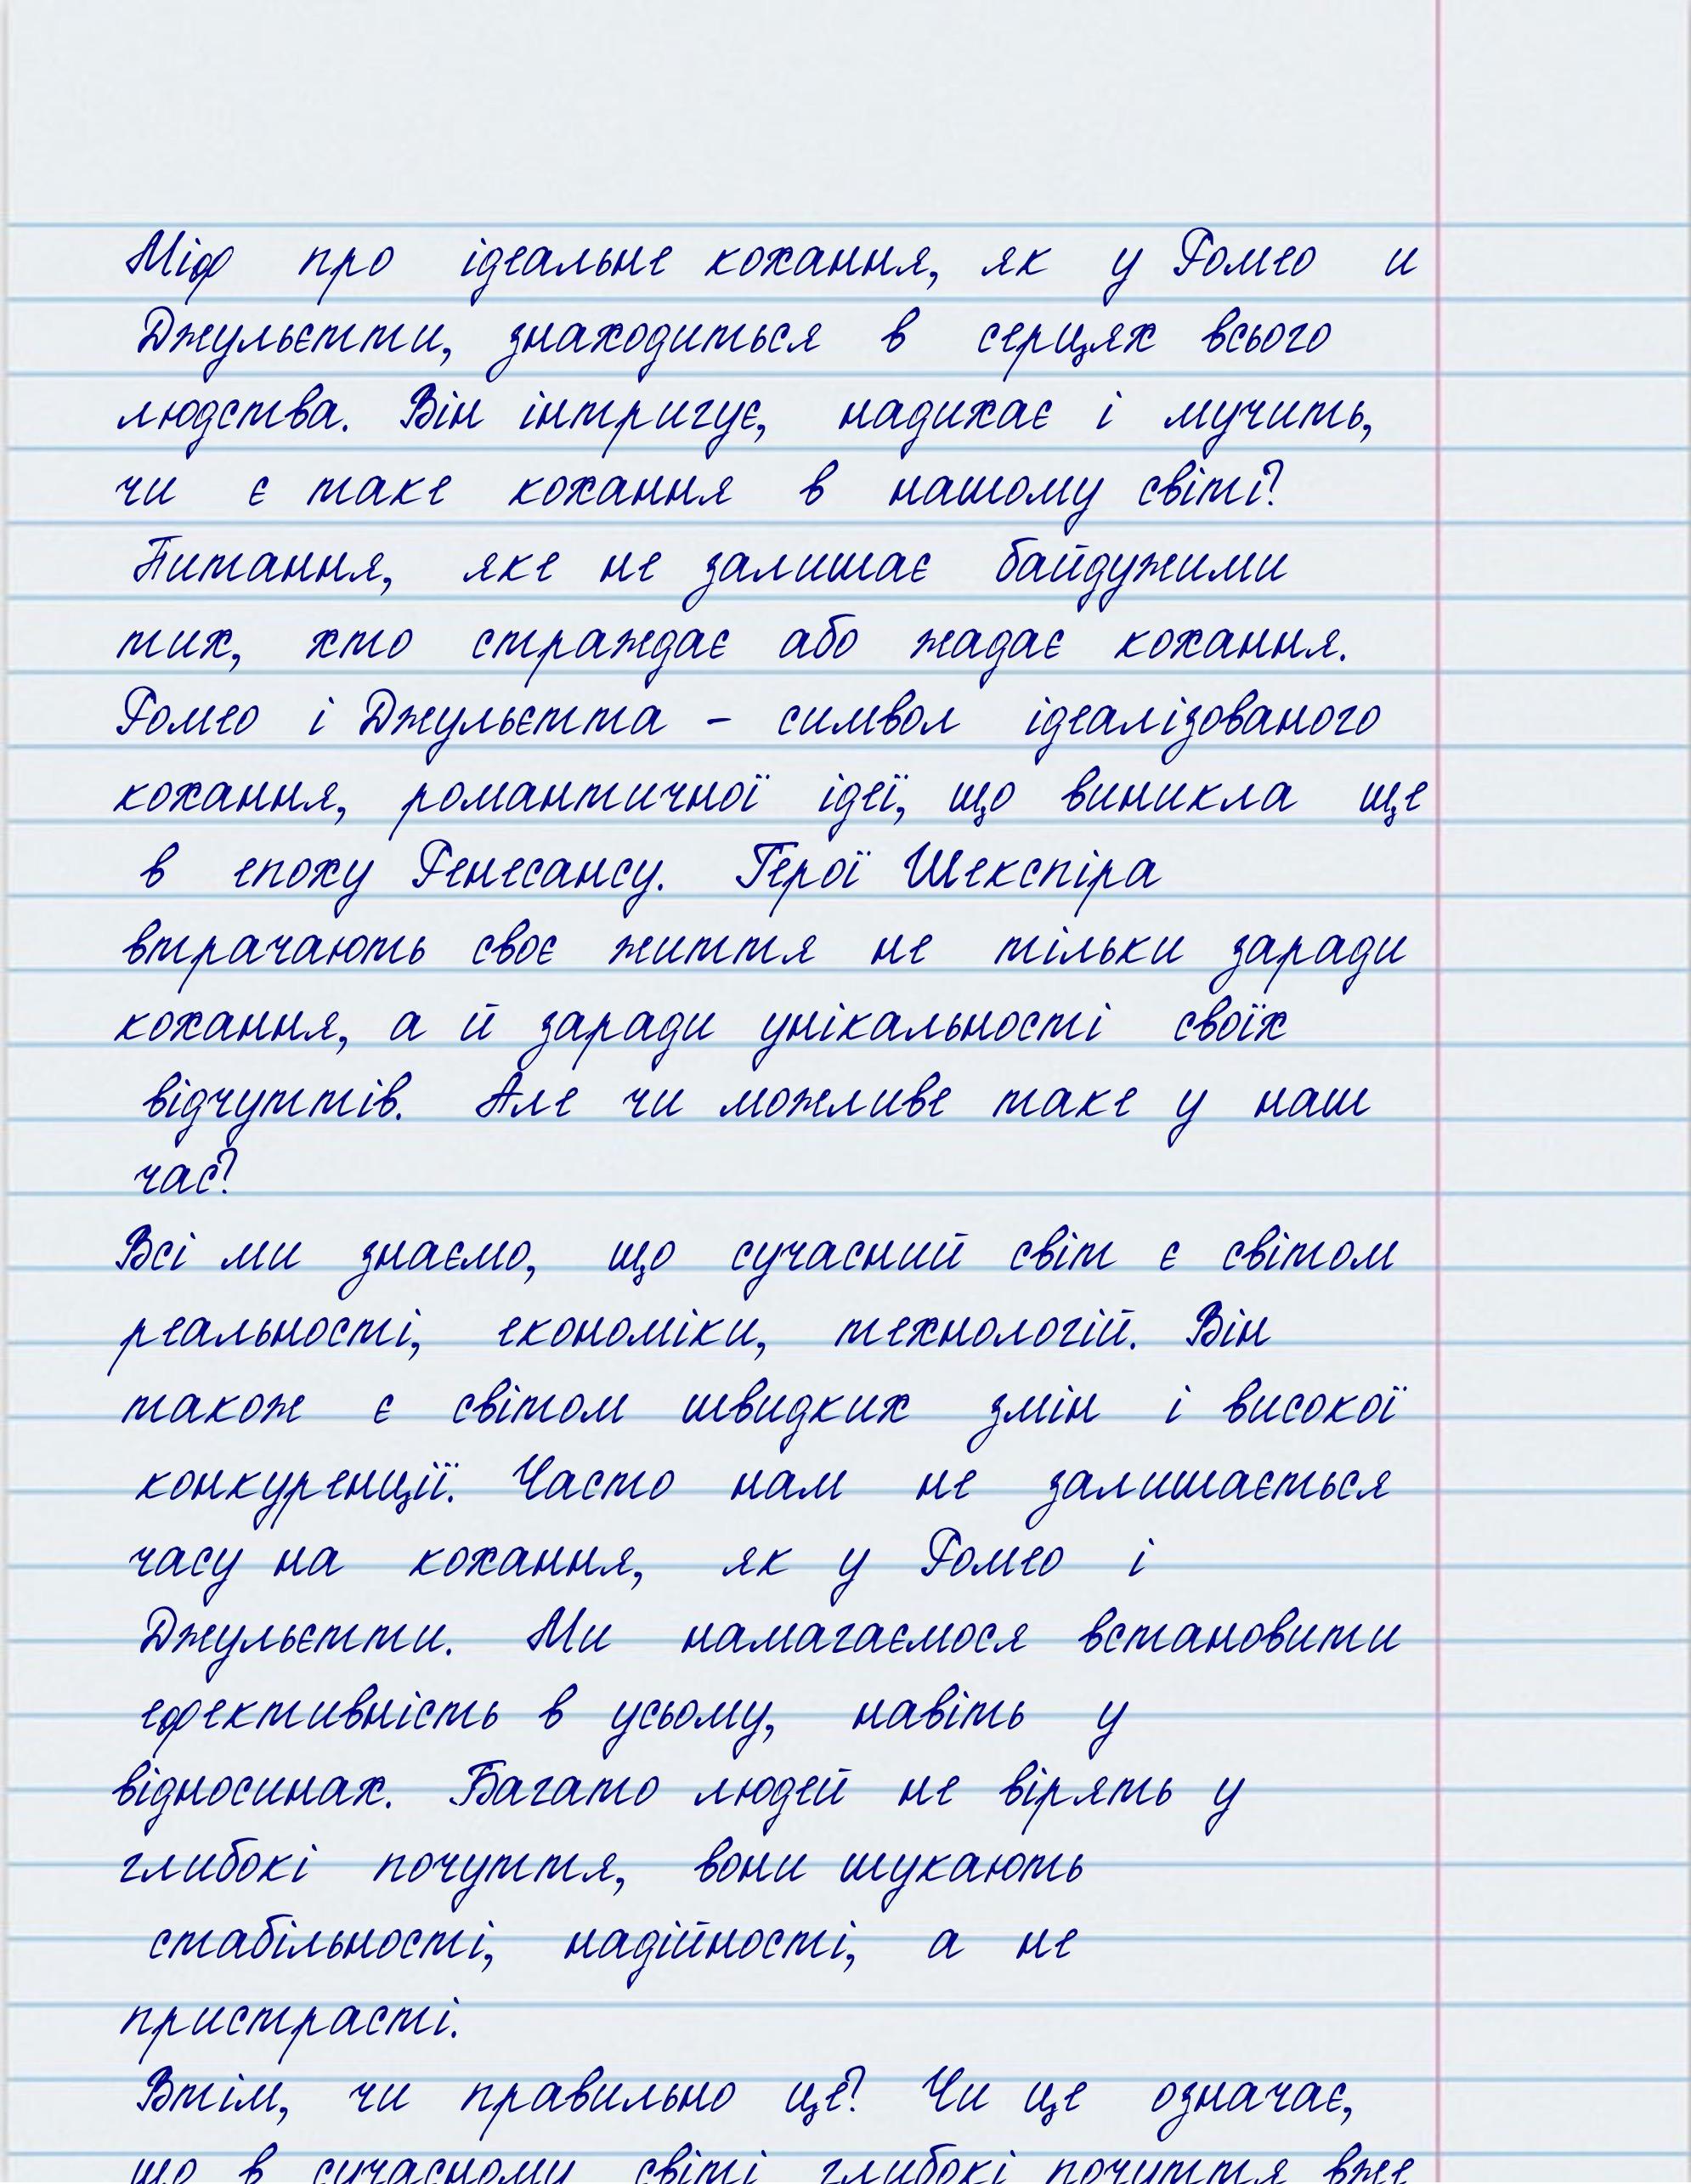 Міф про ідеальне кохання, як у Ромео и
Джульєтти, знаходиться в серцях всього
людства. Він інтригує, надихає і мучить,
чи є таке кохання в нашому світі?
Питання, яке не залишає байдужими
тих, хто страждає або жадає кохання.
Ромео і Джульєтта - символ ідеалізованого
кохання, романтичної ідеї, що виникла ще
в епоху Ренесансу. Герої Шекспіра
втрачають своє життя не тільки заради
кохання, а й заради унікальності своїх
відчуттів. Але чи можливе таке у наш
час?
Всі ми знаємо, що сучасний світ є світом
реальності, економіки, технологій. Він
також є світом швидких змін і високої
конкуренції. Часто нам не залишається
часу на кохання, як у Ромео і
Джульєтти. Ми намагаємося встановити
ефективність в усьому, навіть у
відносинах. Багато людей не вірять у
глибокі почуття, вони шукають
стабільності, надійності, а не
пристрасті.
Втім, чи правильно це? Чи це означає,
що в сучасному світі глибокі почуття вже